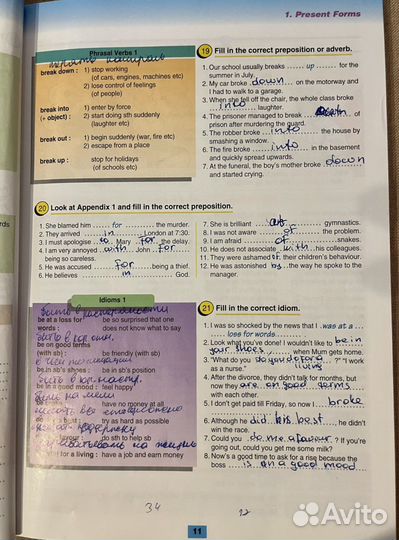 1. Present Forms
Phrasal Verbs 1
break down : 1) stop working
(of cars, engines, machines etc)
2) lose control of feelings
(of people)
break into 1) enter by force
(+ object) : 2) start doing sth suddenly
(laughter etc)
break out : 1) begin suddenly (war, fire etc)
2) escape from a place
break up : stop for holidays
(of schools etc)
19 Fill in the correct preposition or adverb.
1. Our school usually breaks ...... up ...... for the
summer in July.
2. My car broke down on the motorway and
I had to walk to a garage.
3. When she fell off the chair, the whole class broke
into laughter.
4. The prisoner managed to break of
prison after murdering the guard.
5. The robber broke into the house by
smashing a window.
6. The fire broke into in the basement
and quickly spread upwards.
7. At the funeral, the boy's mother broke down
and started crying.
20 Look at Appendix 1 and fill in the correct preposition.
1. She blamed him ...... for ...... the murder.
2. They arrived in London at 7:30.
3. I must apologise to Mary for the delay.
4. I am very annoyed with John for
being so careless.
5. He was accused for being a thief.
6. He believes in God.
7. She is brilliant at gymnastics.
8. I was not aware of the problem.
9. I am afraid of snakes.
10. He does not associate with his colleagues.
11. They were ashamed of their children's behaviour.
12. He was astonished by the way he spoke to the
manager.
Idioms 1
be at a loss for be so surprised that one
words : does not know what to say
be on good terms
(with sb) : be friendly (with sb)
be in sb's shoes : be in sb's position
be in a good mood : feel happy
have no money at all
try as hard as possible
do sth to help sb
for a living : have a job and earn money
21 Fill in the correct idiom.
1. I was so shocked by the news that I .was at a ...
..... loss for words ........
2. Look what you've done! I wouldn't like to be in
your shoes when Mum gets home.
3. "What do you do for a living ?" "I work
as a nurse."
4. After the divorce, they didn't talk for months, but
now they are on good terms
with each other.
5. I don't get paid till Friday, so now I broke
6. Although he did his best, he didn't
win the race.
7. Could you do me a favour ? If you're
going out, could you get me some milk?
8. Now's a good time to ask for a rise because the
boss is in a good mood
34
12
11
Avito